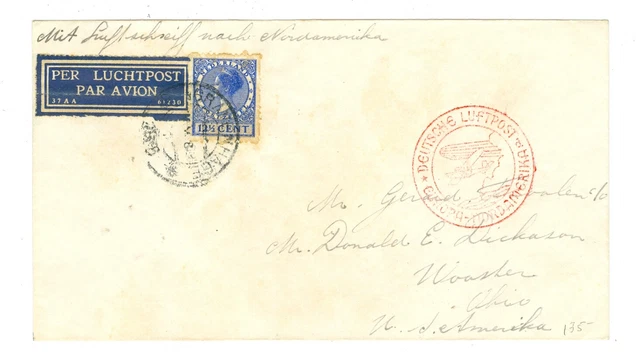 Mit Luftschiff nach Nordamerika
PER LUCHTPOST
PAR AVION
37 AA 61730
NEDERLAND
12½ CENT
'S-GRAVENHAGE
* DEUTSCHE LUFTPOST *
EUROPA-NORDAMERIKA
Mr. Gerald c/o
Mr. Donald E. Dickason
Wooster
Ohio
U. S. Amerika
135-